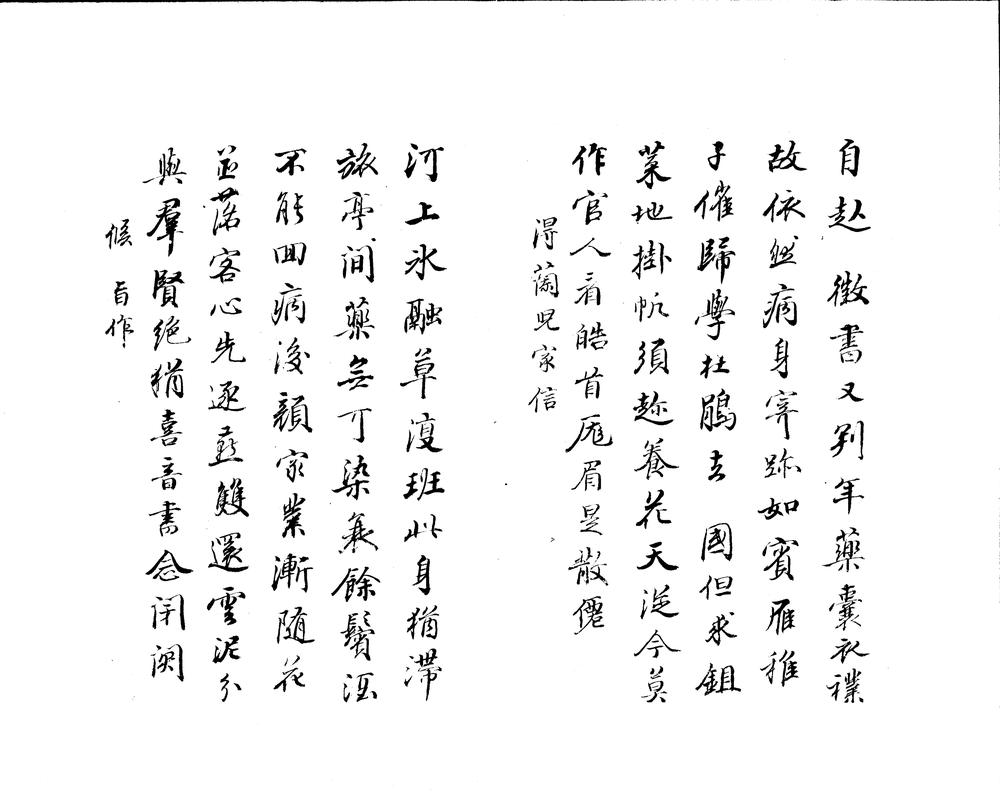 自赴 徵書又別年藥囊衣襆
故依然病身寄跡如賓雁稚
子催歸學杜鵑去 國但求鉏
菜地掛帆須趂養花天從今莫
作官人看皓首厖眉是散僊
得蘭兒家信
河上氷融草復班此身猶滯
旅亭間藥無可染衰餘鬢酒
不能回病後顏家業漸隨花
並落客心先逐燕雙還雲泥分
與羣賢絕猶喜音書念閉関
候 旨作